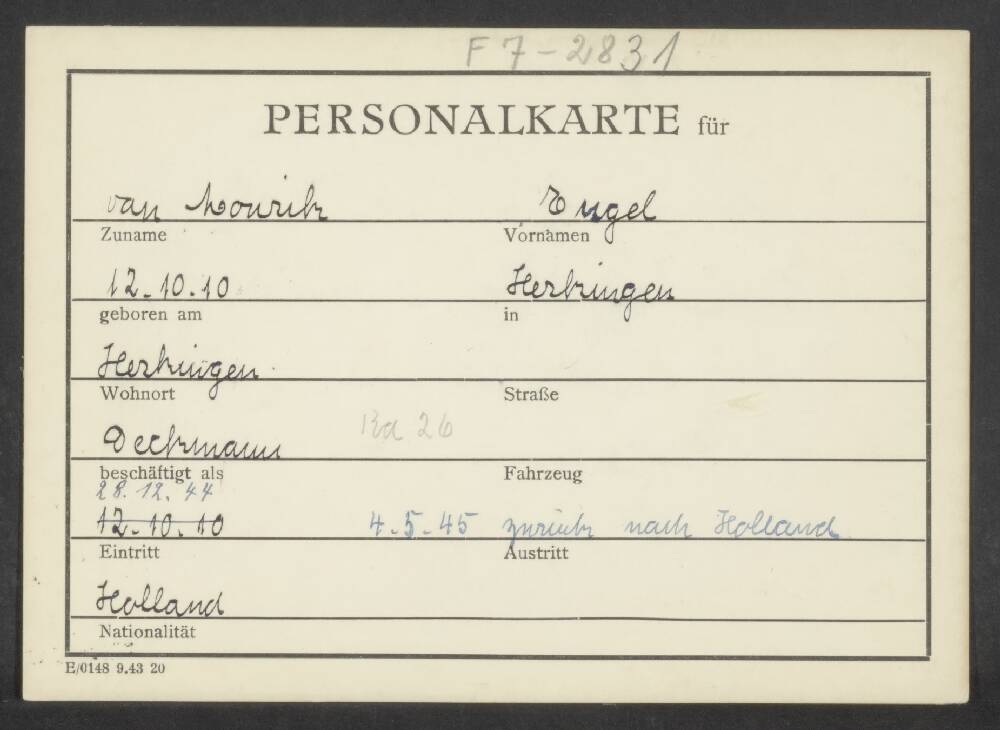 F 7-2831
PERSONALKARTE für
van Engel
Zuname Vornamen
12.10.10
geboren am in
Wohnort Straße
Deckmann Ra 26
beschäftigt als Fahrzeug
28.12.44
12.10.10 4.5.45 zurück nach Holland
Eintritt Austritt
Holland
Nationalität
E/0148 9.43 20